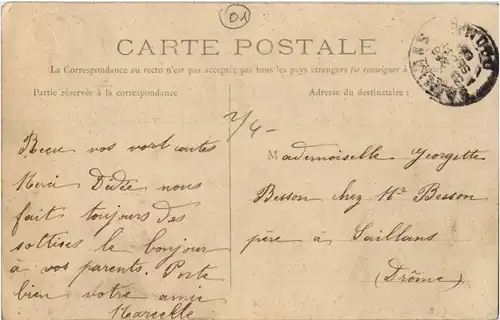 01
CARTE POSTALE
La Correspondance au recto n'est pas acceptée par tous les pays étrangers (se renseigner à la
Partie réservée à la correspondance
Adresse du destinataire :
Recu vos vort cartes
Merci Dédée nous
fait toujours des
sottises le bonjour
à vos parents. Porte
bien votre amie
Marcelle
Mademoiselle Georgette
Besson chez Mr Besson
père à Saillans
(Drôme)